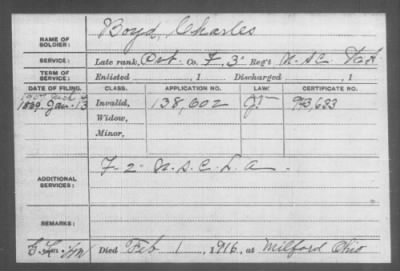 NAME OF SOLDIER: Boyd, Charles
SERVICE: Late rank, Pvt. Co. F, 3d Reg't U.S.C.
TERM OF SERVICE: Enlisted , 1 Discharged , 1
DATE OF FILING. CLASS. APPLICATION NO. LAW. CERTIFICATE NO.
1889 Jan. 13 Invalid, 138,602 973,633
Widow,
Minor,
ADDITIONAL SERVICES: F-2-U.S.C.L.A.
REMARKS:
Died Feb 1, 1916, at Milford Ohio